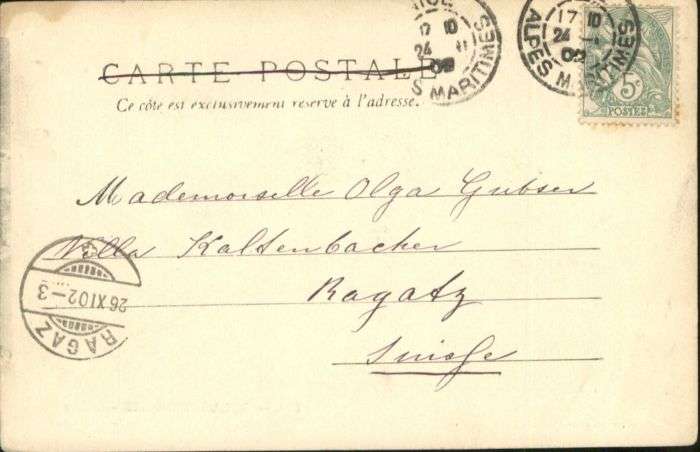 CARTE POSTALE
Ce côté est exclusivement réservé à l'adresse.
17 10
24
02
S MARITIMES
17 10
24
02
ALPES MARITIMES
5c
POSTES
Mademoiselle Olga Gubser
Villa Kaltenbacher
Ragatz
Suisse
RAGAZ
26 XI 02 - 3